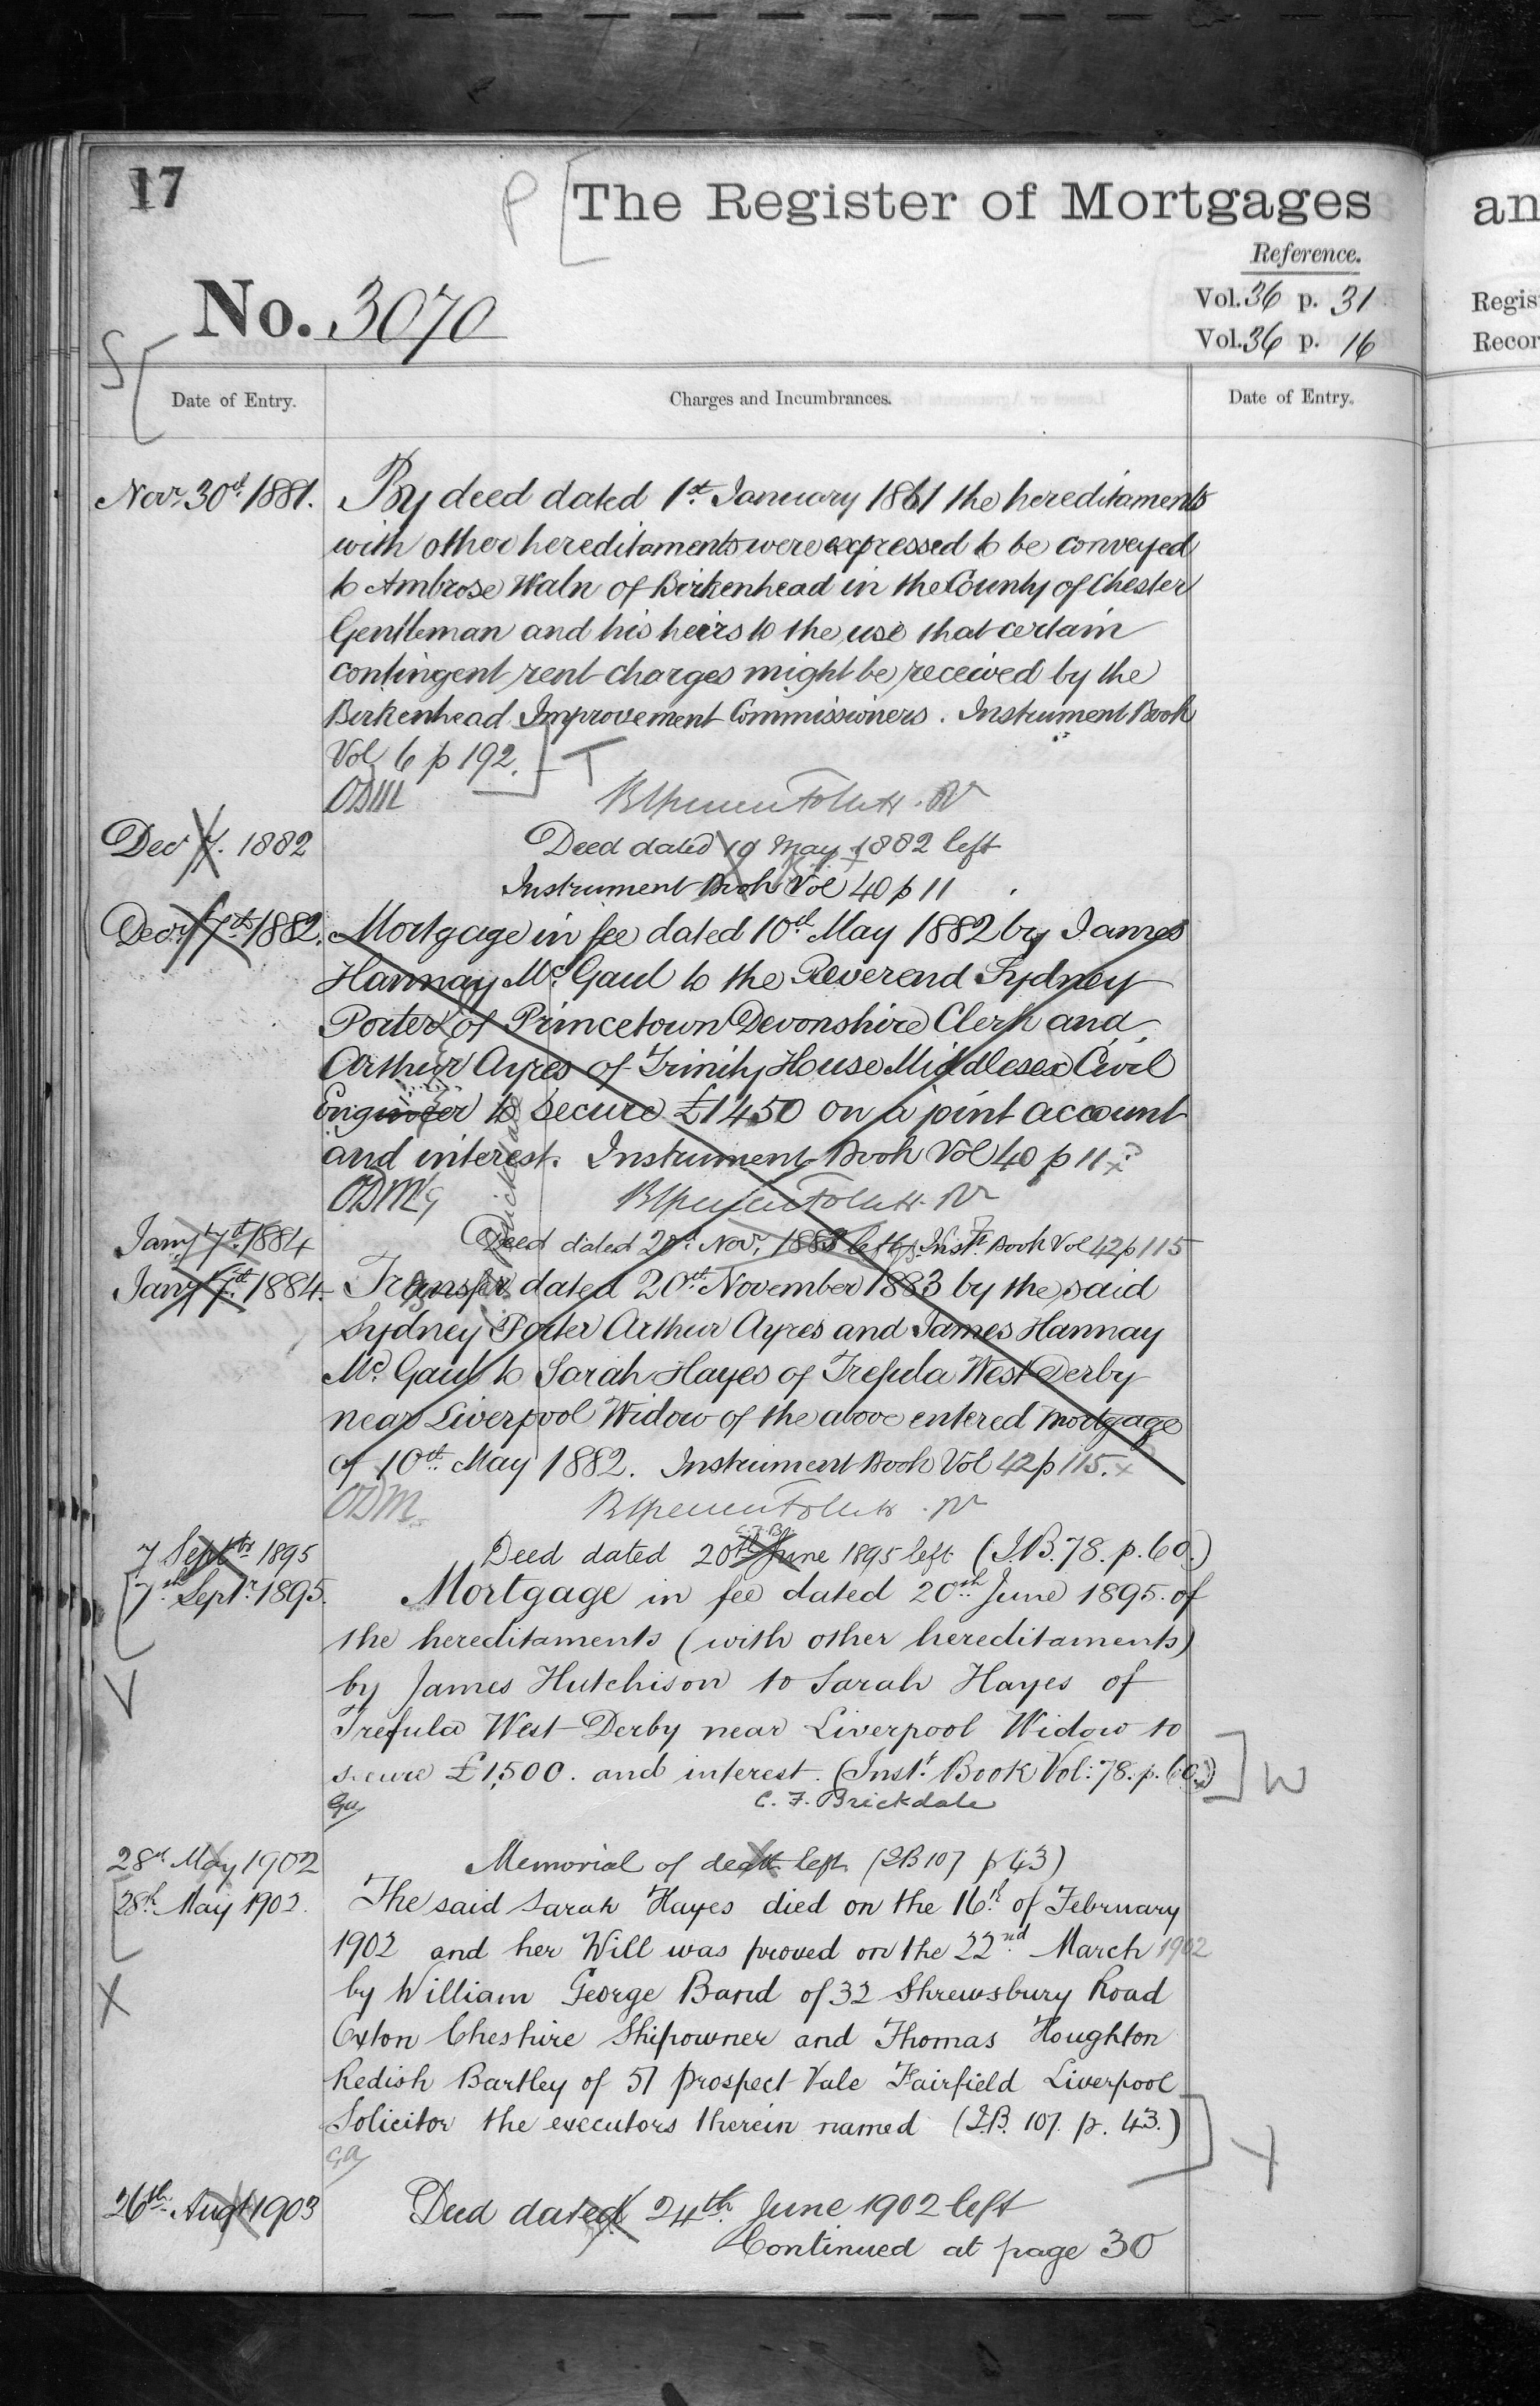 17
P [ The Register of Mortgages
an
Reference.
No. 3070
Vol. 36 p. 31
Regis
Vol. 36 p. 16
Recor
S [
Date of Entry.
Charges and Incumbrances.
Date of Entry.
Novr 30th 1881. By deed dated 1st January 1861 the hereditaments
with other hereditaments were expressed to be conveyed
to Ambrose Waln of Birkenhead in the County of Chester
Gentleman and his heirs to the use that certain
contingent rent charges might be received by the
Birkenhead Improvement Commissioners. Instrument Book
Vol 6 p 192. ] T
ODM
Dec 7. 1882 Deed dated 10 May 1882 left
Instrument Book Vol 40 p 11
Decr 7th 1882. Mortgage in fee dated 10th May 1882 by James
Hannay Mc Gaul to the Reverend Sydney
Porter of Princetown Devonshire Clerk and
Arthur Ayres of Trinity House Middlesex Civil
Engineer to secure £1450 on a joint account
and interest. Instrument Book Vol 40 p 11
Jany 7th 1884 Deed dated 20th Nov. 1883 left Inst. Book Vol 42 p 115
Jany 7th 1884 Transfer dated 20th November 1883 by the said
Sydney Porter Arthur Ayres and James Hannay
Mc Gaul to Sarah Hayes of Trefula West Derby
near Liverpool Widow of the above entered mortgage
of 10th May 1882. Instrument Book Vol 42 p 115.
ODM
C.F.B.
7 Septr 1895 Deed dated 20th June 1895 left (I.B. 78. p. 60.)
[ 7th Septr 1895. Mortgage in fee dated 20th June 1895. of
the hereditaments (with other hereditaments)
V by James Hutchison to Sarah Hayes of
Trefula West Derby near Liverpool Widow to
secure £1,500. and interest. (Inst. Book Vol: 78. p. 60.) ] W
C. F. Brickdale
28th May 1902 Memorial of death left (IB 107 p 43)
[ 28th May 1902. The said Sarah Hayes died on the 16th of February
1902 and her Will was proved on the 22nd March 1902
X by William George Band of 32 Shrewsbury Road
Oxton Cheshire Shipowner and Thomas Houghton
Redish Bartley of 51 Prospect Vale Fairfield Liverpool
Solicitor the executors therein named (I.B. 107. p. 43.) ] Y
26th Augt 1903 Deed dated 24th June 1902 left
Continued at page 30